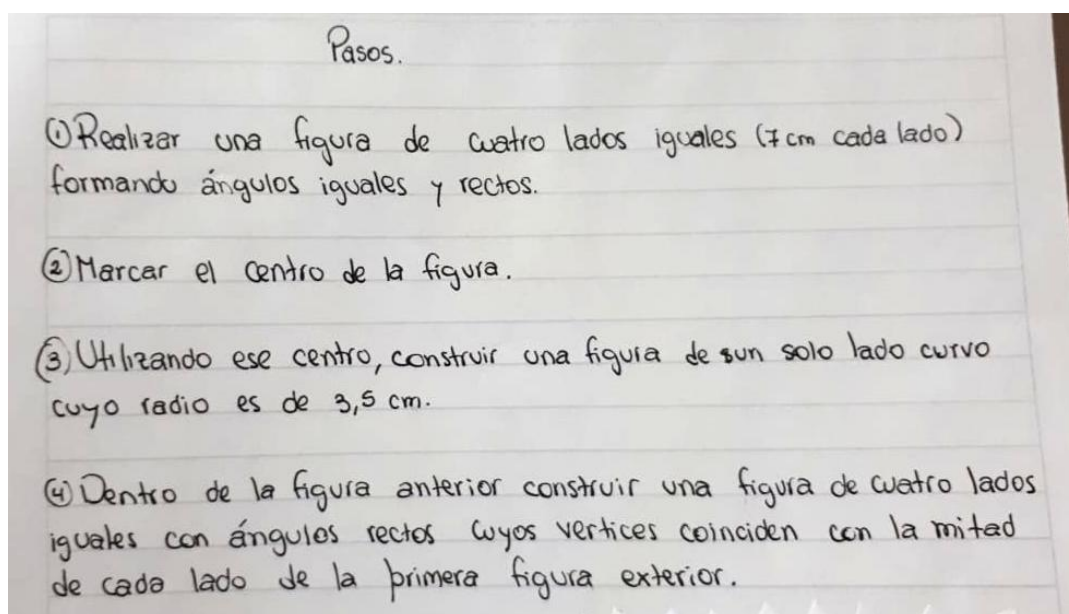 Pasos.
① Realizar una figura de cuatro lados iguales (7 cm cada lado)
formando ángulos iguales y rectos.
② Marcar el centro de la figura.
③ Utilizando ese centro, construir una figura de sun solo lado curvo
cuyo radio es de 3,5 cm.
④ Dentro de la figura anterior construir una figura de cuatro lados
iguales con ángulos rectos cuyos vertices coinciden con la mitad
de cada lado de la primera figura exterior.